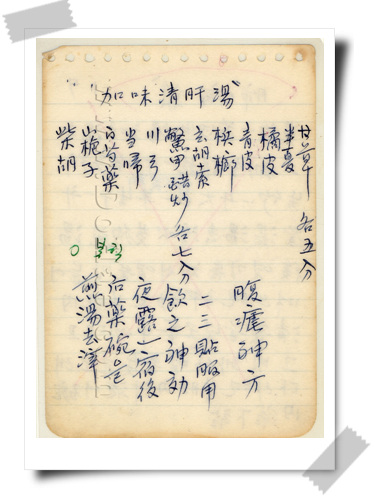 加味清肝湯
柴胡
山梔子
白芍藥
当帰
川芎
鱉甲 醋炒 各七分
玄胡索
檳榔
青皮
橘皮
半夏
甘草 各五分
○ 복학
煎湯去滓
右藥碗
夜露一宿後
飲之神効
二三貼服用
腹瘧神方